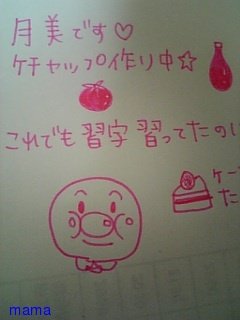 月美です♡
ケチャップ作り中☆
これでも習字習ってたのに
ケー
た
mama